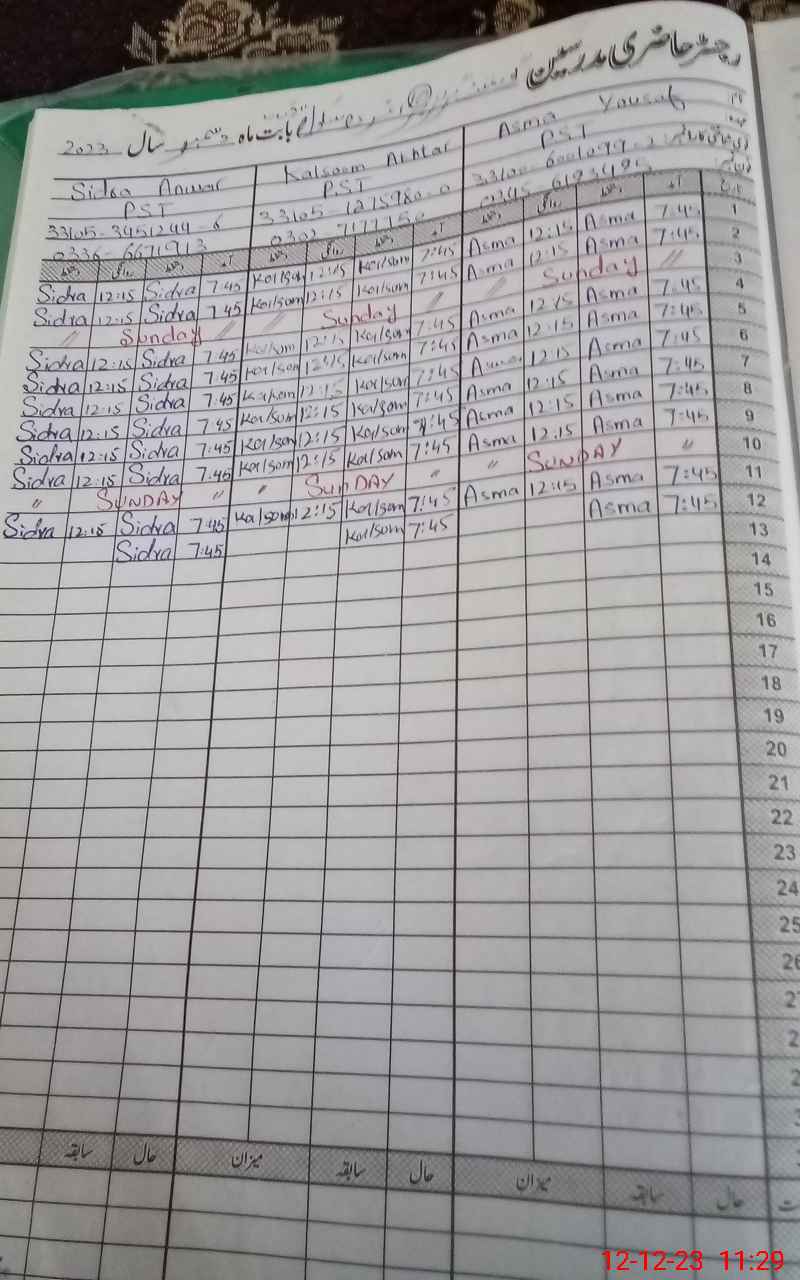 رجسٹر حاضری مدرسین
بابت ماہ دسمبر سال 2023
نام Asma Yousaf Kalsoom Akhtar Sidra Anwar
PST PST PST
33105-3451244-6
0336-6671913
تاریخ آمد دستخط روانگی دستخط آمد دستخط روانگی دستخط آمد دستخط روانگی دستخط
1 7:45 Asma 12:15 Asma 7:45 Kalsom 12:15 Kalsom 7:45 Sidra 12:15 Sidra
2 7:45 Asma 12:15 Asma 7:45 Kalsom 12:15 Kalsom 7:45 Sidra 12:15 Sidra
3 〃 Sunday 〃 〃 Sunday 〃 〃 Sunday 〃
4 7:45 Asma 12:15 Asma 7:45 Kalsom 12:15 Kalsom 7:45 Sidra 12:15 Sidra
5 7:45 Asma 12:15 Asma 7:45 Kalsom 12:15 Kalsom 7:45 Sidra 12:15 Sidra
6 7:45 Asma 12:15 Asma 7:45 Kalsom 12:15 Kalsom 7:45 Sidra 12:15 Sidra
7 7:45 Asma 12:15 Asma 7:45 Kalsom 12:15 Kalsom 7:45 Sidra 12:15 Sidra
8 7:45 Asma 12:15 Asma 7:45 Kalsom 12:15 Kalsom 7:45 Sidra 12:15 Sidra
9 7:45 Asma 12:15 Asma 7:45 Kalsom 12:15 Kalsom 7:45 Sidra 12:15 Sidra
10 〃 SUNDAY 〃 〃 SUNDAY 〃 〃 SUNDAY 〃
11 7:45 Asma 12:15 Asma 7:45 Kalsom 12:15 Kalsom 7:45 Sidra 12:15 Sidra
12 7:45 Asma 7:45 Kalsom 7:45 Sidra
13
14
15
16
17
18
19
20
21
22
23
24
25
26
حال سابقہ میزان حال سابقہ میزان حال سابقہ
12-12-23 11:29